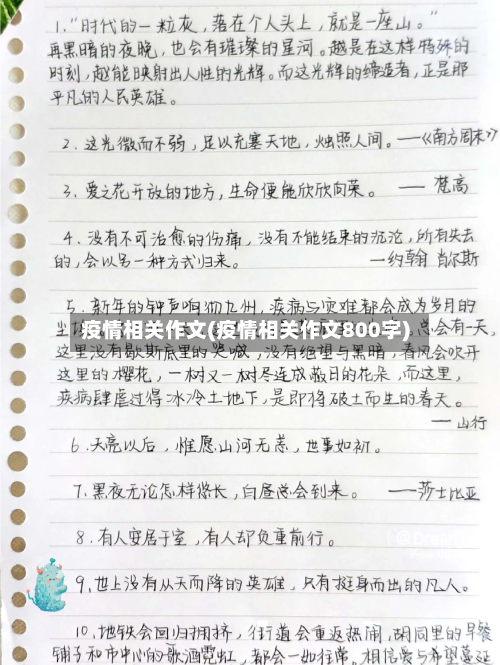 1."时代的一粒灰，落在个人头上，就是一座山。"
再黑暗的夜晚，也会有璀璨的星河。越是在这样特殊的
时刻，越能映射出人性的光辉。而这光辉的缔造者，正是那
平凡的人民英雄。
2. 这光微而不弱，足以充塞天地，烛照人间。——《南方周末》
3. 爱之花开放的地方，生命便能欣欣向荣。—— 梵高
4. 没有不可治愈的伤痛，没有不能结束的沉沦，所有失去
的，会以另一种方式归来。 ——约翰 肖尔斯
5. 新年的钟声响彻九州，疾病与灾难都会成为岁月的
疫情相关作文(疫情相关作文800字)
总会有一天，
这里没有歇斯底里的哭喊，没有绝望与黑暗，春风会吹开
这里的樱花，一树又一树尽连成蔽日的花朵，而这里，
疾病肆虐过得冰冷土地下，是即将破土而生的春天。
—— 山行
6.天亮以后，惟愿山河无恙，世事如初。
7.黑夜无论怎样悠长，白昼总会到来。 ——莎士比亚
8.有人安居于室，有人却负重前行。
9.世上没有从天而降的英雄，只有挺身而出的凡人。
10.地铁会回归拥挤，街道会重返热闹，胡同里的早餐
铺子和市中心的歌酒霓虹，都会一如往常。相信爱与希望蔓延